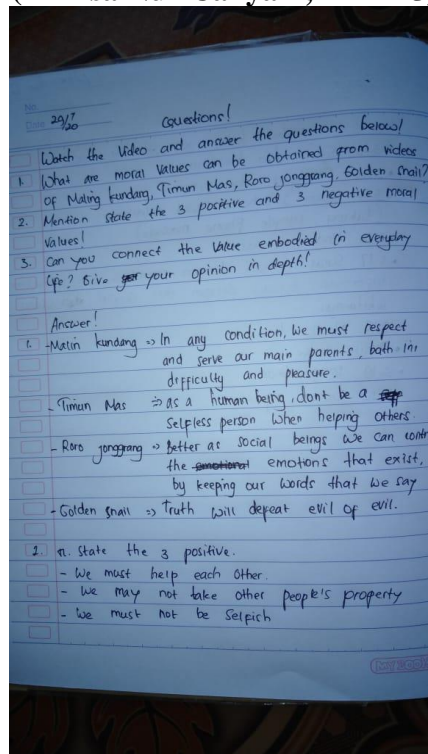 No.
Date 29/7/20
Questions!
Watch the video and answer the questions below!
1. What are moral values can be obtained from videos
of Maling kundang, Timun Mas, Roro jonggrang, Golden snail?
2. Mention state the 3 positive and 3 negative moral
values!
3. Can you connect the value embodied in everyday
life? Give your opinion in depth!
Answer!
1. - Malin kundang => In any condition, we must respect
and serve our main parents, bath in
difficulty and pleasure.
- Timun Mas => as a human being, dont be a
Selfless person when helping others.
- Roro jonggrang => Better as social beings we can contr
the emotional emotions that exist,
by keeping our words that we say
- Golden snail => Truth will defeat evil of evil.
2. a. State the 3 positive.
- We must help each other.
- We may not take other people's property
- We must not be Selfish